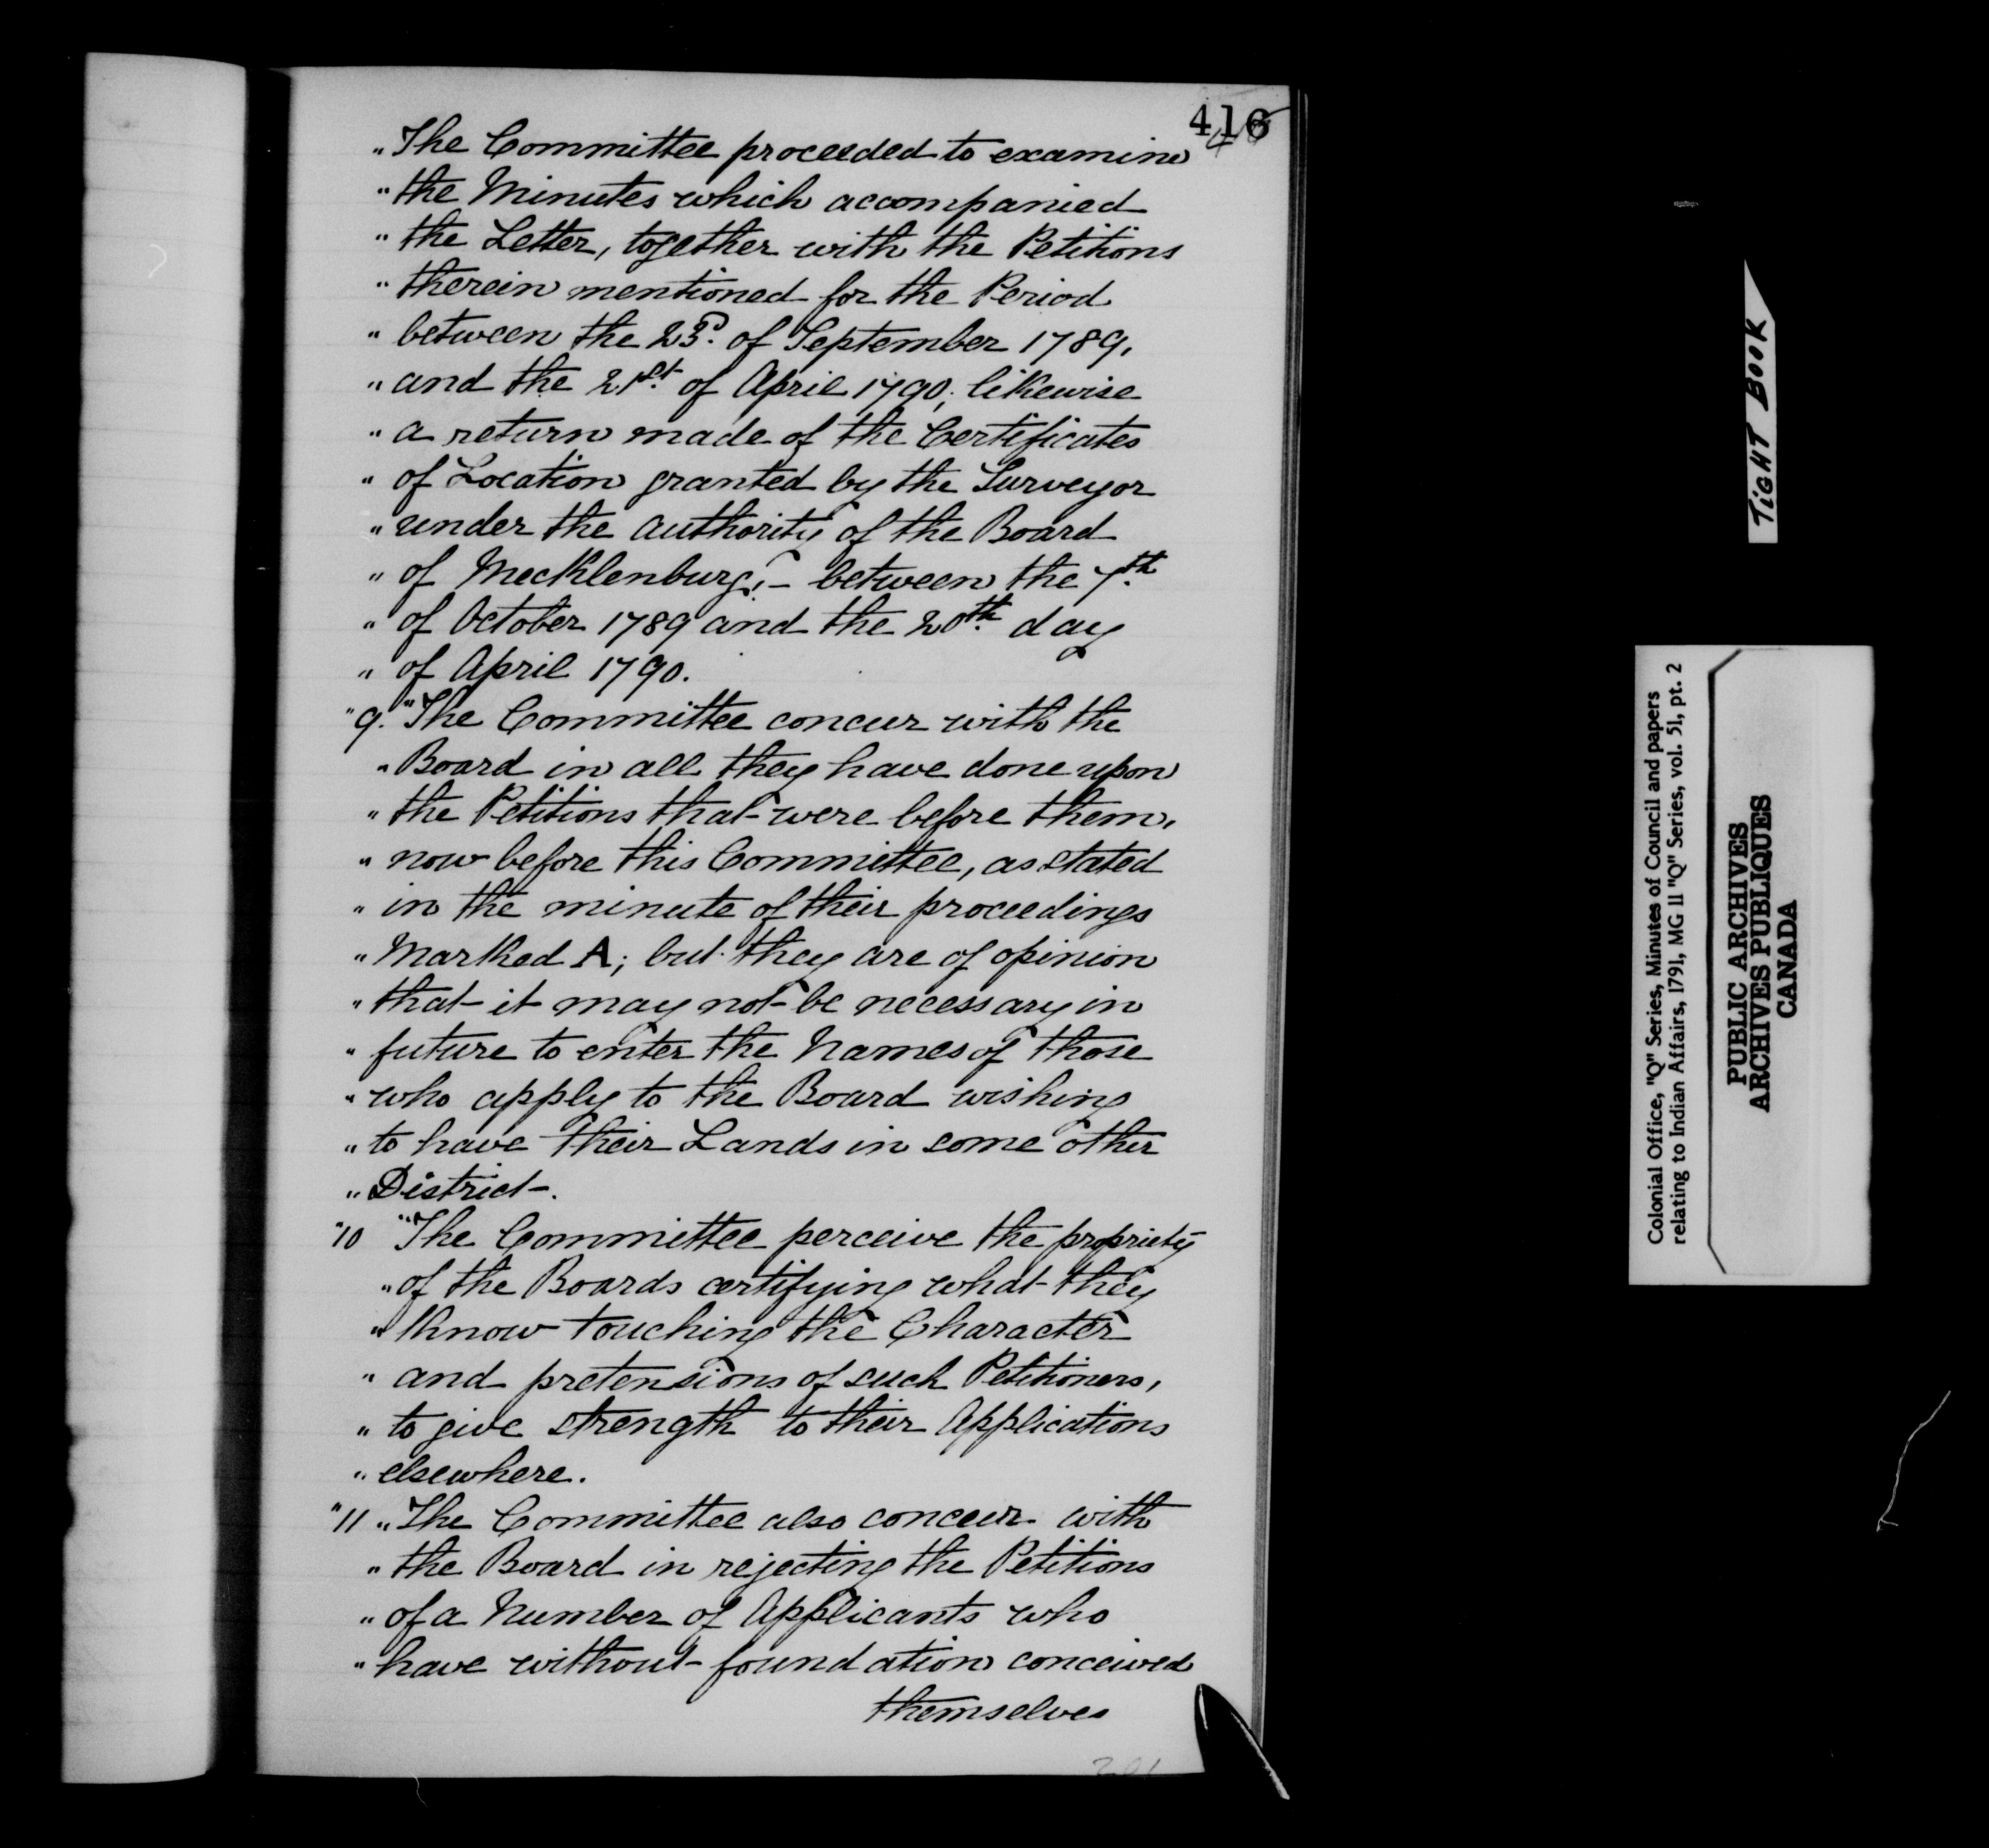 416
„ The Committee proceeded to examine
" the Minutes which accompanied
" the Letter, together with the Petitions
" therein mentioned for the Period
" between the 23d. of September 1789,
" and the 21st. of April 1790; likewise
" a return made of the Certificates
" of Location granted by the Surveyor
" under the authority of the Board
" of Mecklenburg, – between the 7th.
" of October 1789 and the 20th. day
" of April 1790.
"9. "The Committee concur with the
" Board in all they have done upon
" the Petitions that were before them,
" now before this Committee, as stated
" in the minute of their proceedings
" Marked A; but they are of opinion
" that it may not be necessary in
" future to enter the Names of those
" who apply to the Board wishing
" to have their Lands in some other
" District –.
"10 "The Committee perceive the propriety
" of the Boards certifying what they
" know touching the Character
" and pretensions of such Petitioners,
" to give strength to their Applications
" elsewhere.
"11 „ The Committee also concur with
" the Board in rejecting the Petitions
" of a Number of Applicants who
" have without foundation conceived
themselves
TIGHT BOOK
Colonial Office, "Q" Series, Minutes of Council and papers
relating to Indian Affairs, 1791, MG 11 "Q" Series, vol. 51, pt. 2
PUBLIC ARCHIVES
ARCHIVES PUBLIQUES
CANADA